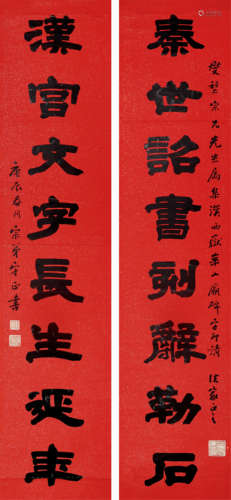 秦世詔書刻辭勒石
漢宮文字長生延年
宗兄先生屬集漢西嶽華山廟碑字即請
法家正之
庚辰春月宗弟
書